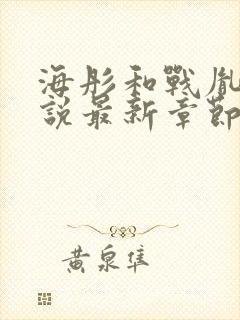 海彤和戰胤
說最新章節
黃泉隼